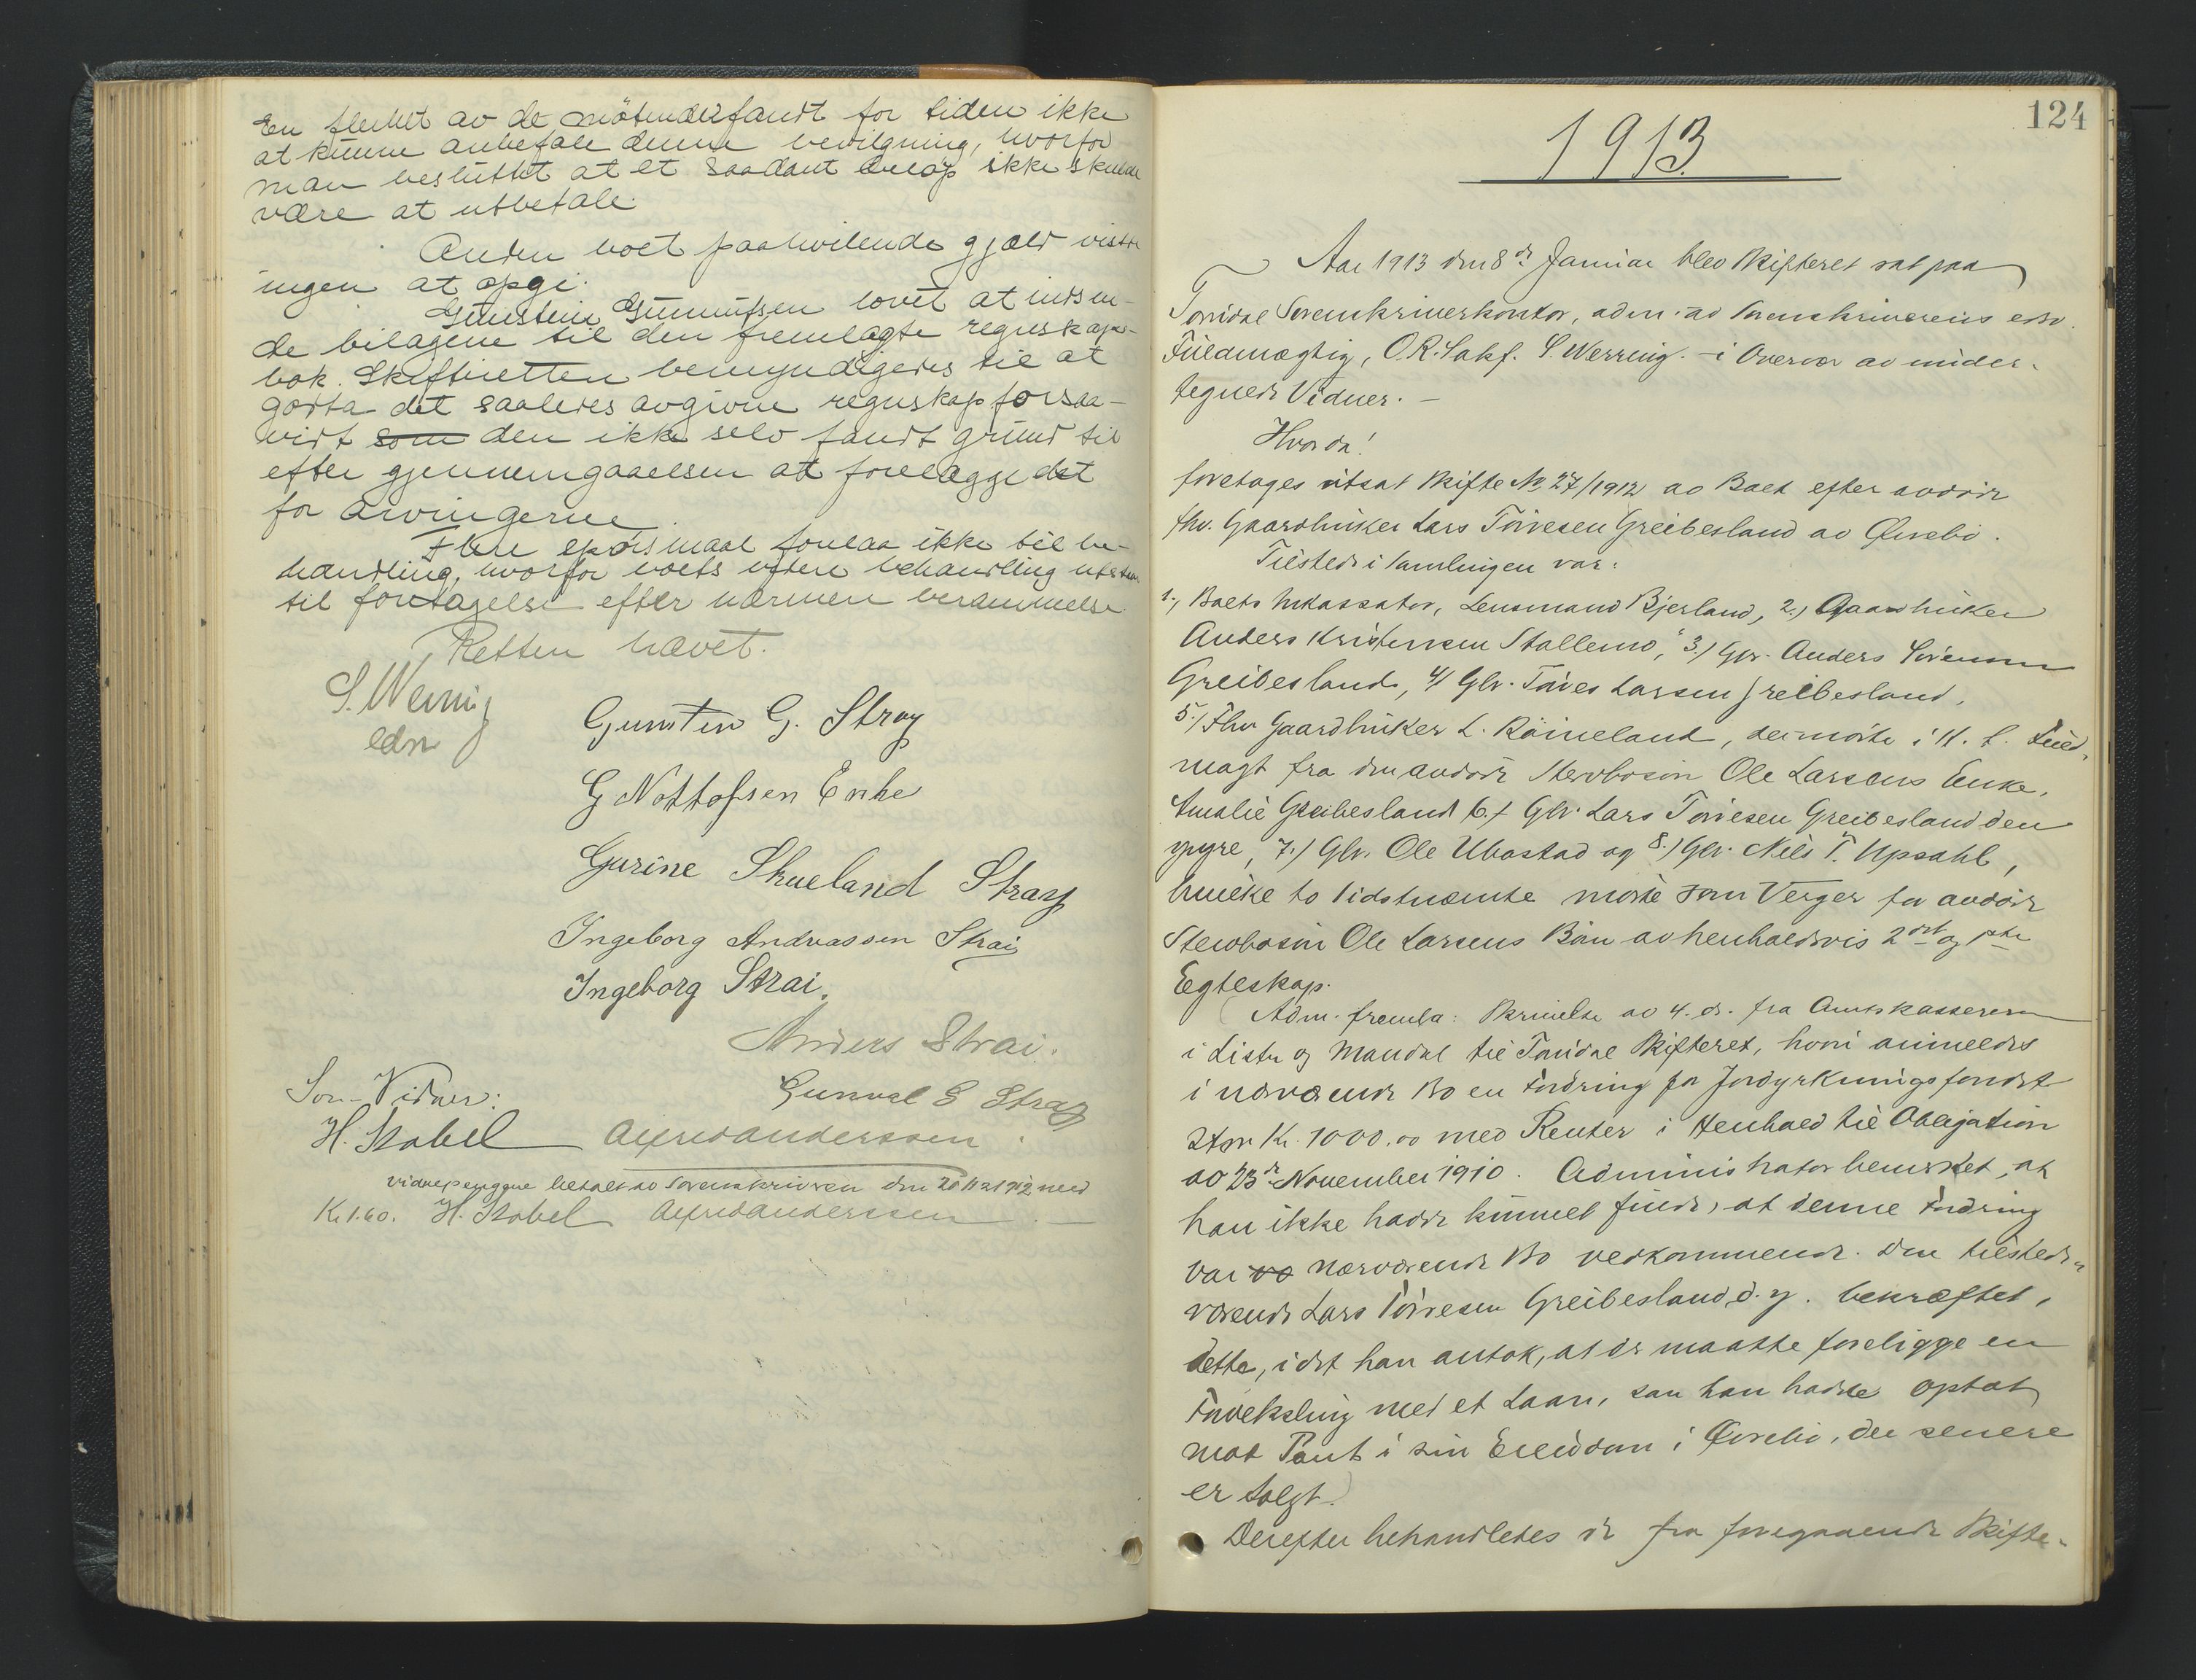 En flerhet av de mötende fandt for tiden ikke
at kunne anbefale denne bevilgning, hvorfor
man besluttet at et saadant beløp ikke skulde
være at utbetale.
Anden boet paahvilende gjæld visste
ingen at opgi.
Gunstein Gunnufsen lovet at indsen-
de bilagene til den fremlagte regnskaps-
bok. Skifteretten bemyndigedes til at
godta det saaledes avgivne regnskap forsaa-
vidt som den ikke selv fandt grund til
efter gjennemgaaelsen at forelægge det
for arvingerne.
Flere spörsmaal forelaa ikke til be-
handling, hvorfor boets videre behandling utsattes
til foretagelse efter nærmere berammelse.
Retten hævet.
S. Werring
edsv
Gunsten G. Stray
G Nottofsen Enke
Gurine Skueland Stray
Ingeborg Andreassen Strai
Ingeborg Strai.
Anders Strai.
Gunval G Stray
Som Vidner:
H. Stabel Alfred Anderssen
Vidnepengene betalt av Sorenskriveren den 1912 med
Kr 1.60. H. Stabel Alfred Anderssen
124
1913.
Aar 1913 den 8de Januar blev Skifteret sat paa
Torridal Sorenskriverkontor, adm. av Sorenskriverens edsv.
Fuldmægtig, O.R. Sakf. S. Werring. i Overvær av under-
tegnede Vidner. —
Hvorda!
foretages utsat Skifte No 27/1912 av Boet efter avdøde
fhv. Gaardbruker Lars Tørresen Greibesland av Øvrebø.
Tilstede i Samlingen var:
1., Boets Inkassator, Lensmand Bjerland, 2.) Gaardbruker
Anders Kristensen Stallemo, 3.) Gbr. Anders Sørensen
Greibesland, 4) Gbr. Tørres Larsen Greibesland,
5.) Fhv Gaardbruker L. Röineland, der mødte i H. t. Fuld-
magt fra den avdøde Stervbosøn Ole Larsens Enke,
Amalie Greibesland 6.) Gbr. Lars Tørresen Greibesland den
yngre, 7.) Gbr. Ole Ubostad og 8.) Gbr. Nils T. Upsahl,
hvilke to Sidstnævnte mødte som Verger for avdøde
Stervbosøn Ole Larsens Børn av henholdsvis 2det og 1ste
Egteskap.
Adm. fremla: Skrivelse av 4. ds. fra Amtskassereren
i Lister og Mandal til Torridal Skifteret, hvori anmeldes
i nærværende Bo en Fordring for Jorddyrkningsfondet
stor Kr. 1000,00 med Renter i Henhold til Obligation
av 23de November 1910. Administrator bemerket, at
han ikke hadde kunnet finde, at denne Fordring
var va nærværende Bo vedkommende. Den tilstede-
værende Lars Tørresen Greibesland d. y. bekræftet,
dette, idet han antok, at der maatte foreligge en
Forveksling med et Laan, som han hadde optat
mot Pant i sin Eiendom i Øvrebø, der senere
er solgt.
Derefter behandledes de fra foregaaende Skifte-